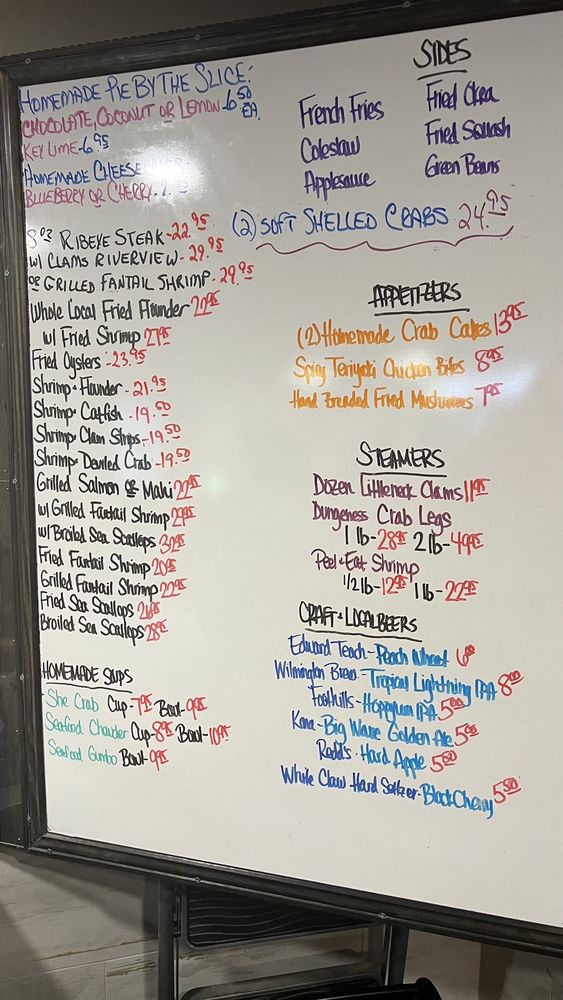 HOMEMADE PIE BY THE SLICE:
CHOCOLATE, COCONUT OR LEMON-6.50 EA.
KEY LIME-6.95
HOMEMADE CHEESE
BLUEBERRY OR CHERRY-
8oz RIBEYE STEAK-22.95
w/ CLAMS RIVERVIEW-29.95
OR GRILLED FANTAIL SHRIMP-29.95
Whole Local Fried Flounder
w/ Fried Shrimp 27.95
Fried Oysters-23.95
Shrimp+Flounder-21.95
Shrimp+Catfish-19.50
Shrimp+Clam Strips-19.50
Shrimp+Deviled Crab-19.50
Grilled Salmon OR Mahi 22.95
w/ Grilled Fantail Shrimp 29.95
w/ Broiled Sea Scallops 32.95
Fried Fantail Shrimp 20.95
Grilled Fantail Shrimp 22.95
Fried Sea Scallops 26.95
Broiled Sea Scallops 28.95
HOMEMADE SOUPS
She Crab Cup-7.95 Bowl-9.95
Seafood Chowder Cup-8.95 Bowl-10.95
Seafood Gumbo Bowl-9.95
SIDES
French Fries
Coleslaw
Applesauce
Fried Okra
Fried Squash
Green Beans
(2) SOFT SHELLED CRABS 24.95
APPETIZERS
(2) Homemade Crab Cakes 13.95
Spicy Teriyaki Chicken Bites 8.95
Hand Breaded Fried Mushrooms 7.95
STEAMERS
Dozen Littleneck Clams 11.95
Dungeness Crab Legs
1 lb-28.95 2 lb-49.95
Peel+Eat Shrimp
1/2 lb-12.95 1 lb-22.95
CRAFT+LOCAL BEERS
Edward Teach-Peach Wheat 6.00
Wilmington Brew.-Tropical Lightning IPA 8.00
Foothills-Hoppyum IPA 5.00
Kona-Big Wave Golden Ale 5.00
Redd's-Hard Apple 5.50
White Claw Hard Seltzer-Black Cherry 5.50